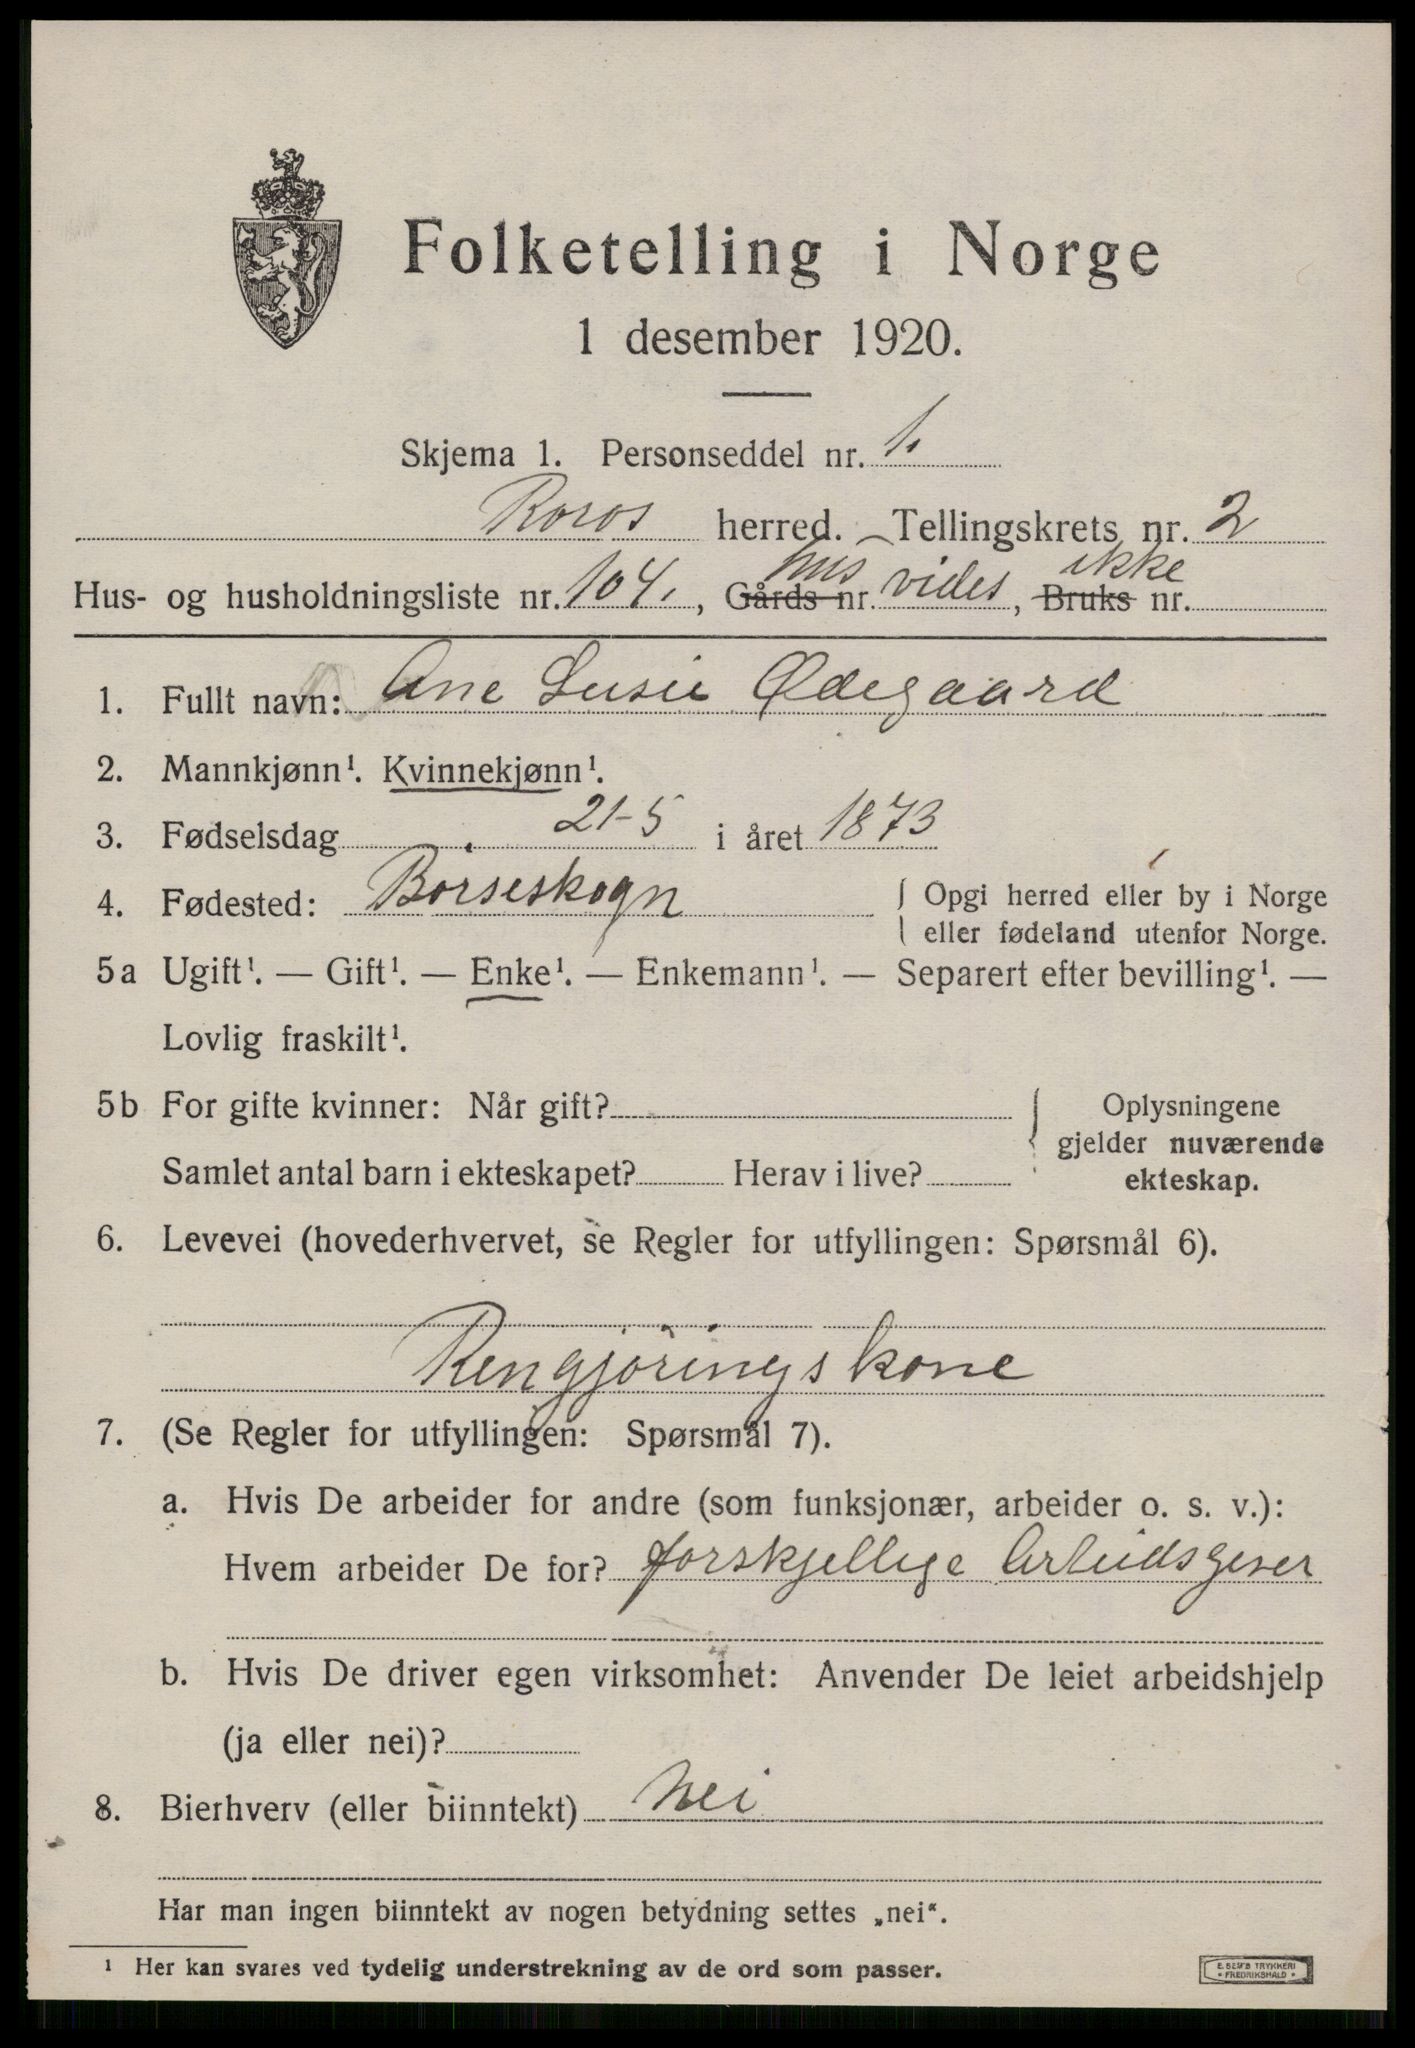 Folketelling i Norge
1 desember 1920.
Skjema 1. Personseddel nr. 1.
Roros herred. — Tellingskrets nr. 2
Hus- og husholdningsliste nr. 104. , Gårds nr. hus vides , Bruks nr. ikke
1. Fullt navn: Ane Lusie Ødegaard
2. Mannkjønn¹. Kvinnekjønn¹.
3. Fødselsdag 21-5 i året 1873
4. Fødested: Börseskogn { Opgi herred eller by i Norge
eller fødeland utenfor Norge.
5a Ugift¹. — Gift¹. — Enke¹. — Enkemann¹. — Separert efter bevilling¹. —
Lovlig fraskilt¹.
5b For gifte kvinner: Når gift? { Oplysningene
gjelder nuværende
Samlet antal barn i ekteskapet? Herav i live? ekteskap.
6. Levevei (hovederhvervet, se Regler for utfyllingen: Spørsmål 6).
Rengjöringskone
7. (Se Regler for utfyllingen: Spørsmål 7).
a. Hvis De arbeider for andre (som funksjonær, arbeider o. s. v.):
Hvem arbeider De for? forskjellige Arbeidsgiver
b. Hvis De driver egen virksomhet: Anvender De leiet arbeidshjelp
(ja eller nei)?
8. Bierhverv (eller biinntekt) Nei
Har man ingen biinntekt av nogen betydning settes „nei“.
¹ Her kan svares ved tydelig understrekning av de ord som passer.
E. SEM'S TRYKKERI
• FREDRIKSHALD •